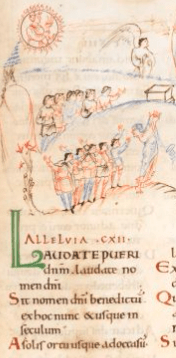 ALLELVIA · CXII ·
LAUDATE PUERI
dnm. laudate no
men dni
Sit nomen dni benedictū
ex hoc nunc & usque in
seculum
A solis ortu usque ad occasū
E
Q
S